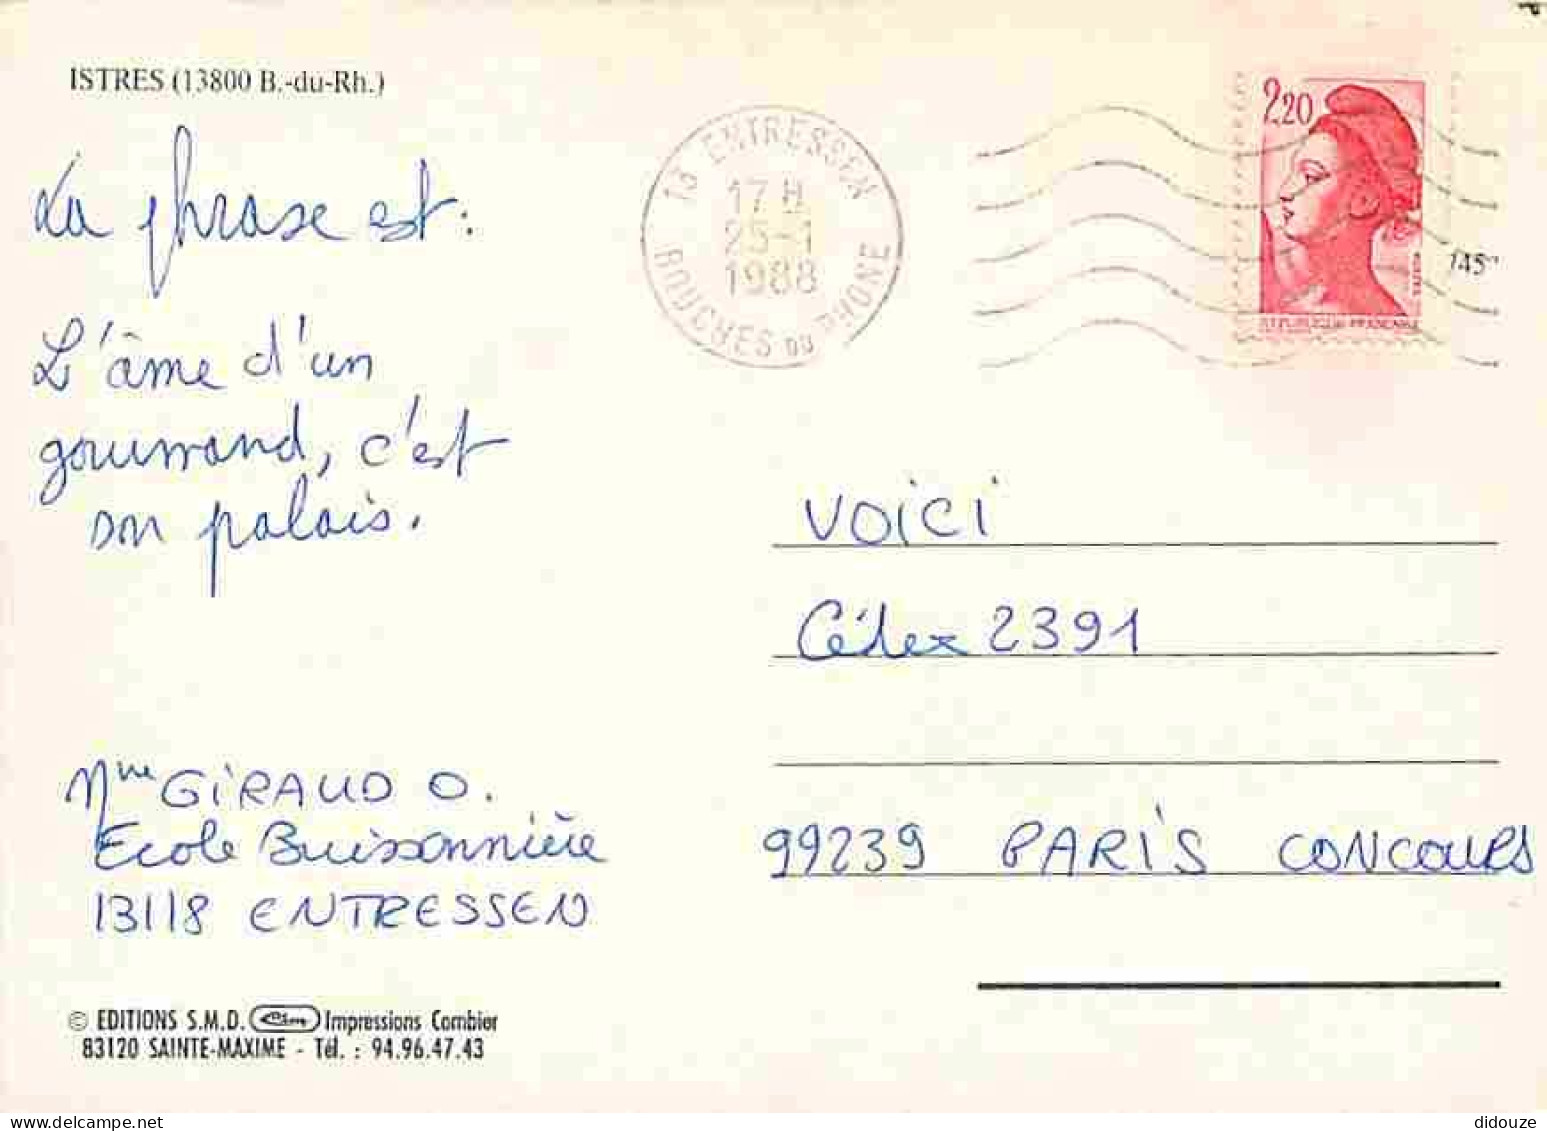 ISTRES (13800 B.-du-Rh.)
La phrase est:
L'âme d'un
gourmand, c'est
son palais.
Mme GIRAUD O.
Ecole Buissonnière
13118 ENTRESSEN
© EDITIONS S.M.D. Impressions Combier
83120 SAINTE-MAXIME - Tél. : 94.96.47.43
13 ENTRESSEN
17 H
25-1
1988
BOUCHES DU RHONE
2,20
REPUBLIQUE FRANCAISE
145
VOICI
Cédex 2391
99239 PARIS CONCOURS
delcampe.net
didouze